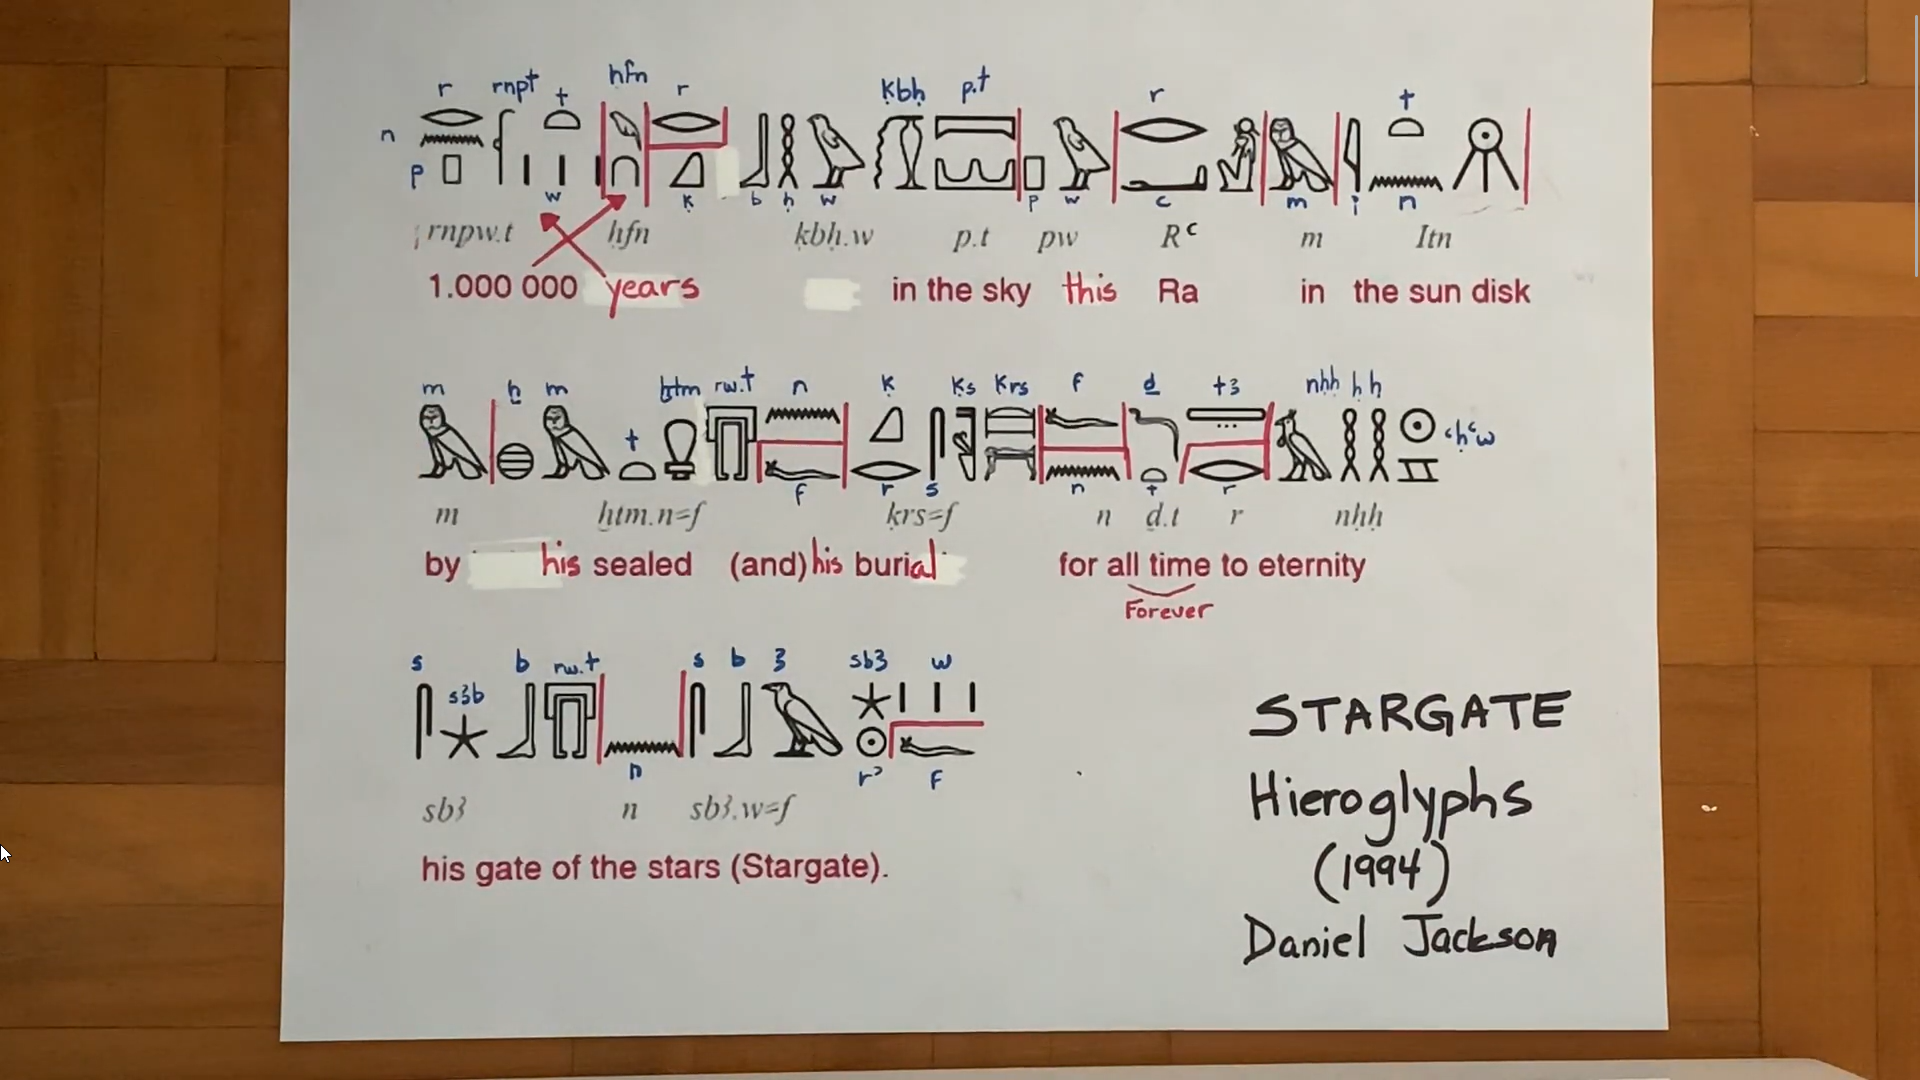 r rnpt t ḥfn r ḳbḥ p.t r t
n
p w ḳ b ḥ w p w c m i n
rnpw.t ḥfn ḳbḥ.w p.t pw Rᶜ m Itn
1.000 000 years in the sky this Ra in the sun disk
m ẖ m ḫtm rw.t n ḳ ḳs ḳrs f ḏ t3 nḥḥ ḥ ḥ
t ᶜḥᶜw
f r s n t r
m ḫtm.n=f ḳrs=f n ḏ.t r nḥḥ
by his sealed (and) his burial for all time to eternity
Forever
s b rw.t s b 3 sb3 w
s3b
n f
sb3 n sb3.w=f
his gate of the stars (Stargate).
STARGATE
Hieroglyphs
(1994)
Daniel Jackson